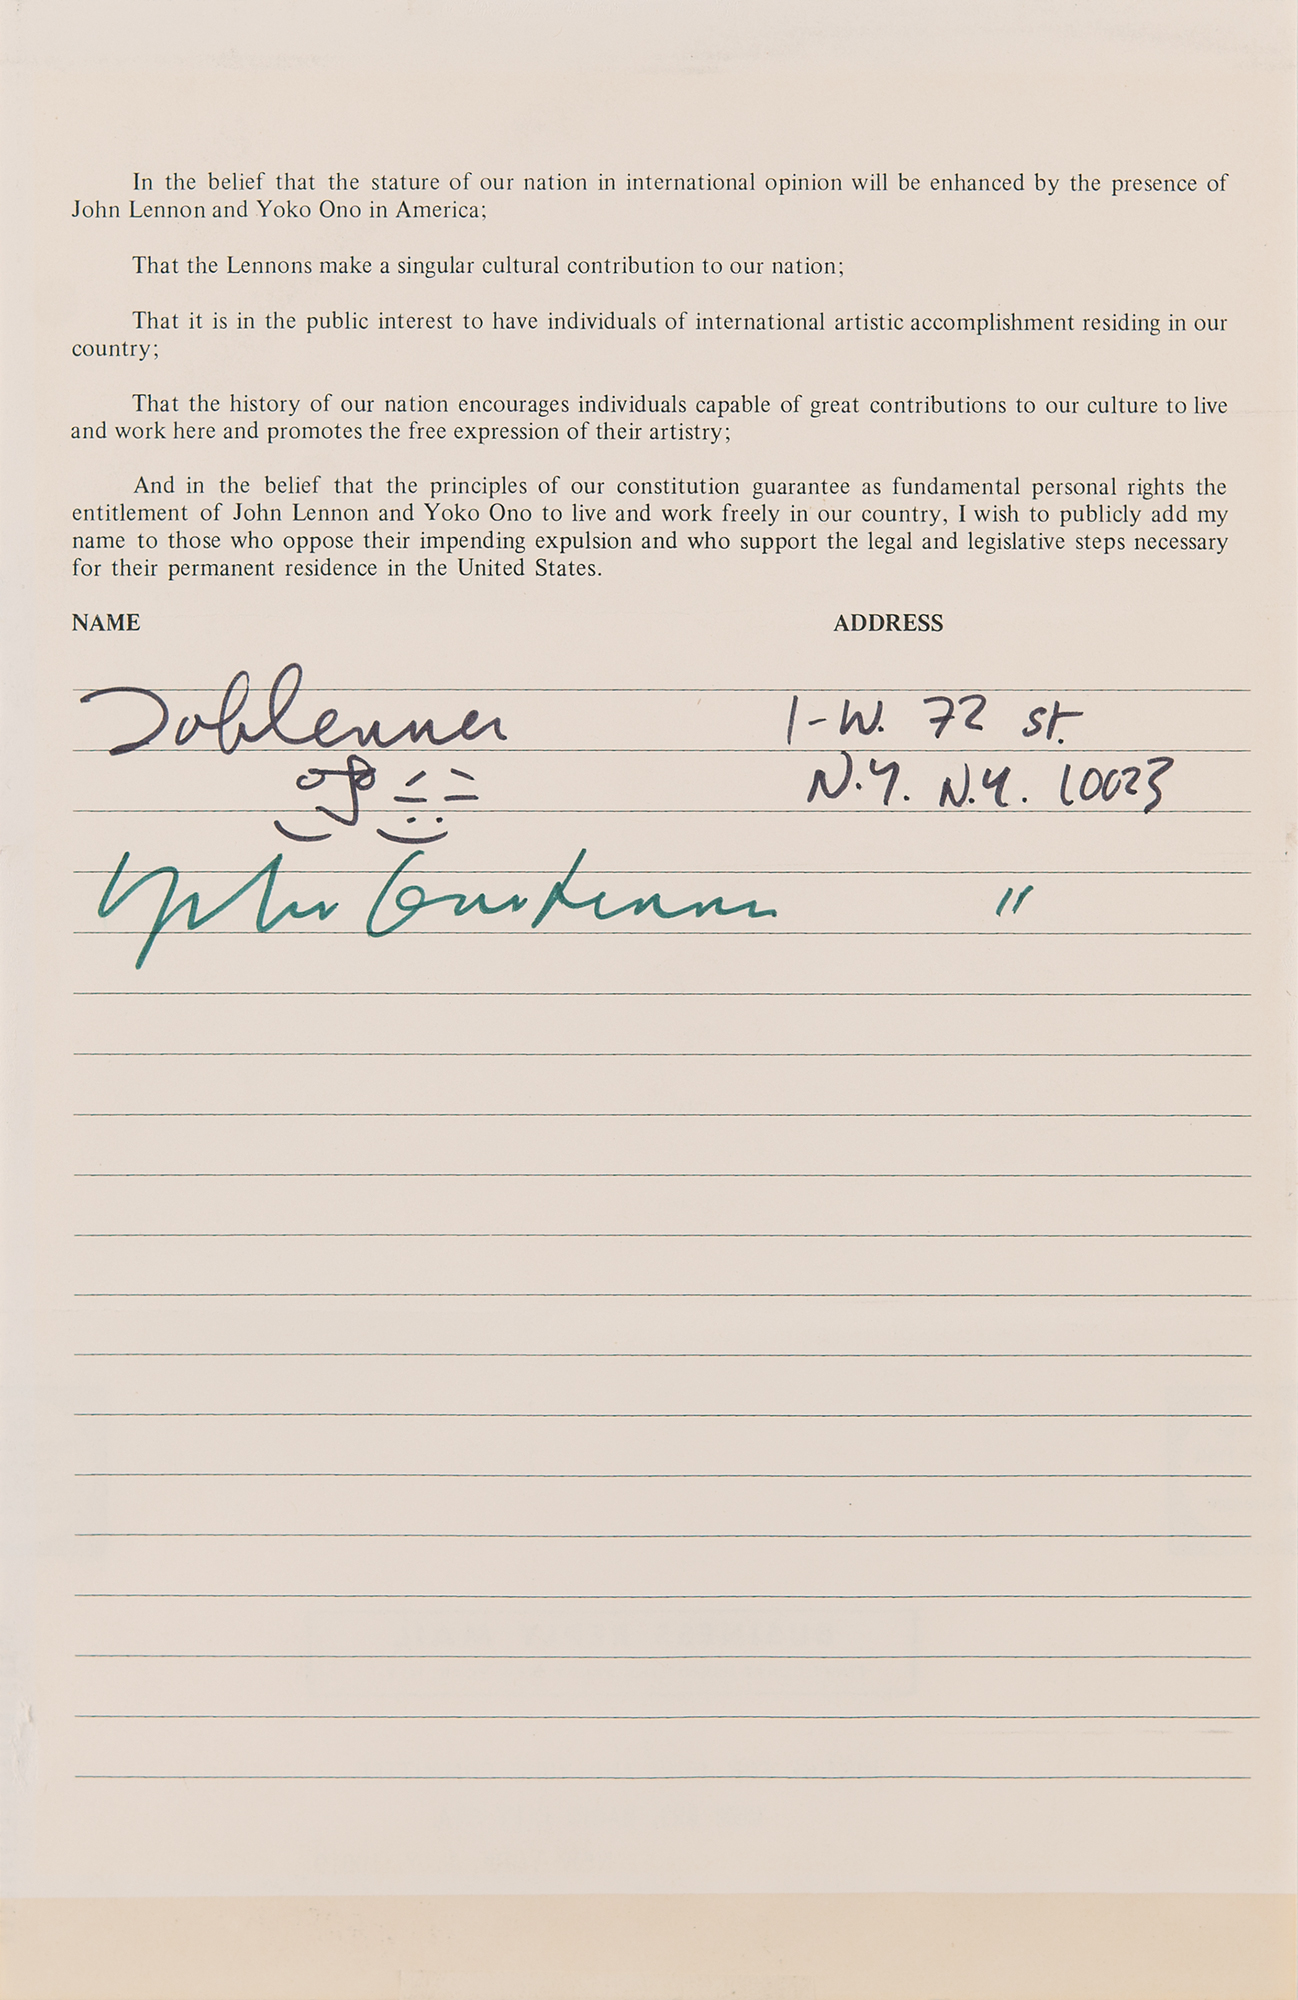 In the belief that the stature of our nation in international opinion will be enhanced by the presence of
John Lennon and Yoko Ono in America;
That the Lennons make a singular cultural contribution to our nation;
That it is in the public interest to have individuals of international artistic accomplishment residing in our
country;
That the history of our nation encourages individuals capable of great contributions to our culture to live
and work here and promotes the free expression of their artistry;
And in the belief that the principles of our constitution guarantee as fundamental personal rights the
entitlement of John Lennon and Yoko Ono to live and work freely in our country, I wish to publicly add my
name to those who oppose their impending expulsion and who support the legal and legislative steps necessary
for their permanent residence in the United States.
NAME ADDRESS
John Lennon 1-W. 72 st.
N.Y. N.Y. 10023
Yoko Ono Lennon "